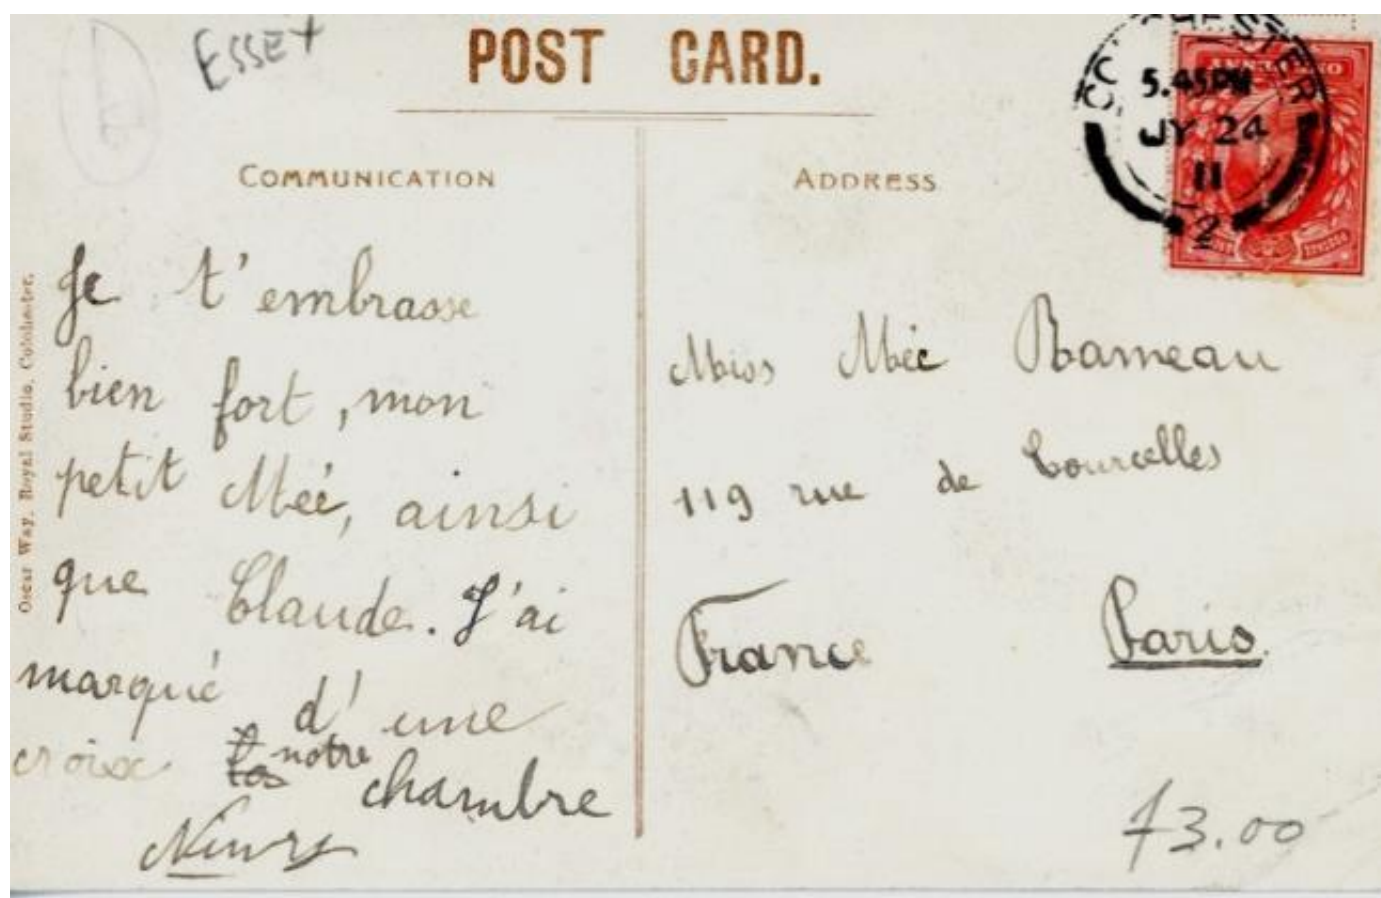 ESSEX
POST CARD.
COLCHESTER
5.45PM
JY 24
11
2
COMMUNICATION
ADDRESS
Oscar Way, Royal Studio, Colchester.
Je t'embrasse
bien fort, mon
petit Mée, ainsi
que Claude. J'ai
marqué d'une
croix notre
chambre
Miss Mée Rameau
119 rue de Courcelles
France Paris.
73.00